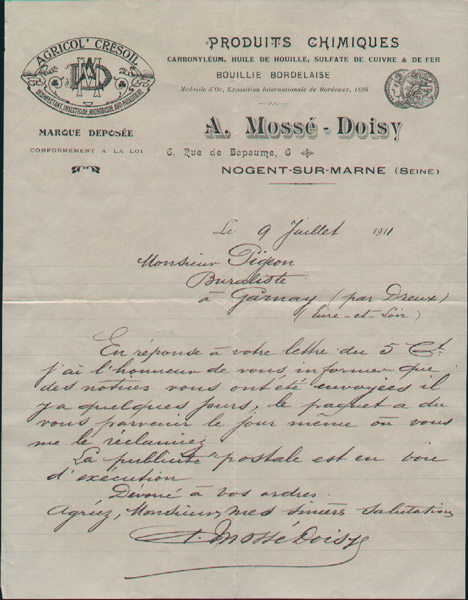 AGRICOL' CRESOIL
DÉSINFECTANT, INSECTICIDE, MICROBICIDE, ANTI-PARASITAIRE
MARQUE DEPOSÉE
CONFORMEMENT A LA LOI
PRODUITS CHIMIQUES
CARBONYLÉUM, HUILE DE HOUILLE, SULFATE DE CUIVRE & DE FER
BOUILLIE BORDELAISE
Médaille d'Or, Exposition Internationale de Bordeaux, 1896
A. Mossé-Doisy
6, Rue de Bapaume, 6
NOGENT-SUR-MARNE (SEINE)
Le 9 Juillet 1911
Monsieur Pigeon
Buraliste
à Garnay (par Dreux)
(Eure-et-Loir)
En réponse à votre lettre du 5 Ct
j'ai l'honneur de vous informer que
des notices vous ont été envoyées il
y a quelques jours, le paquet a du
vous parvenir le jour même où vous
me le réclamiez
La publicité postale est en voie
d'exécution
Dévoué à vos ordres.
Agréez, Monsieur, mes sincères salutations
A. Mossé Doisy